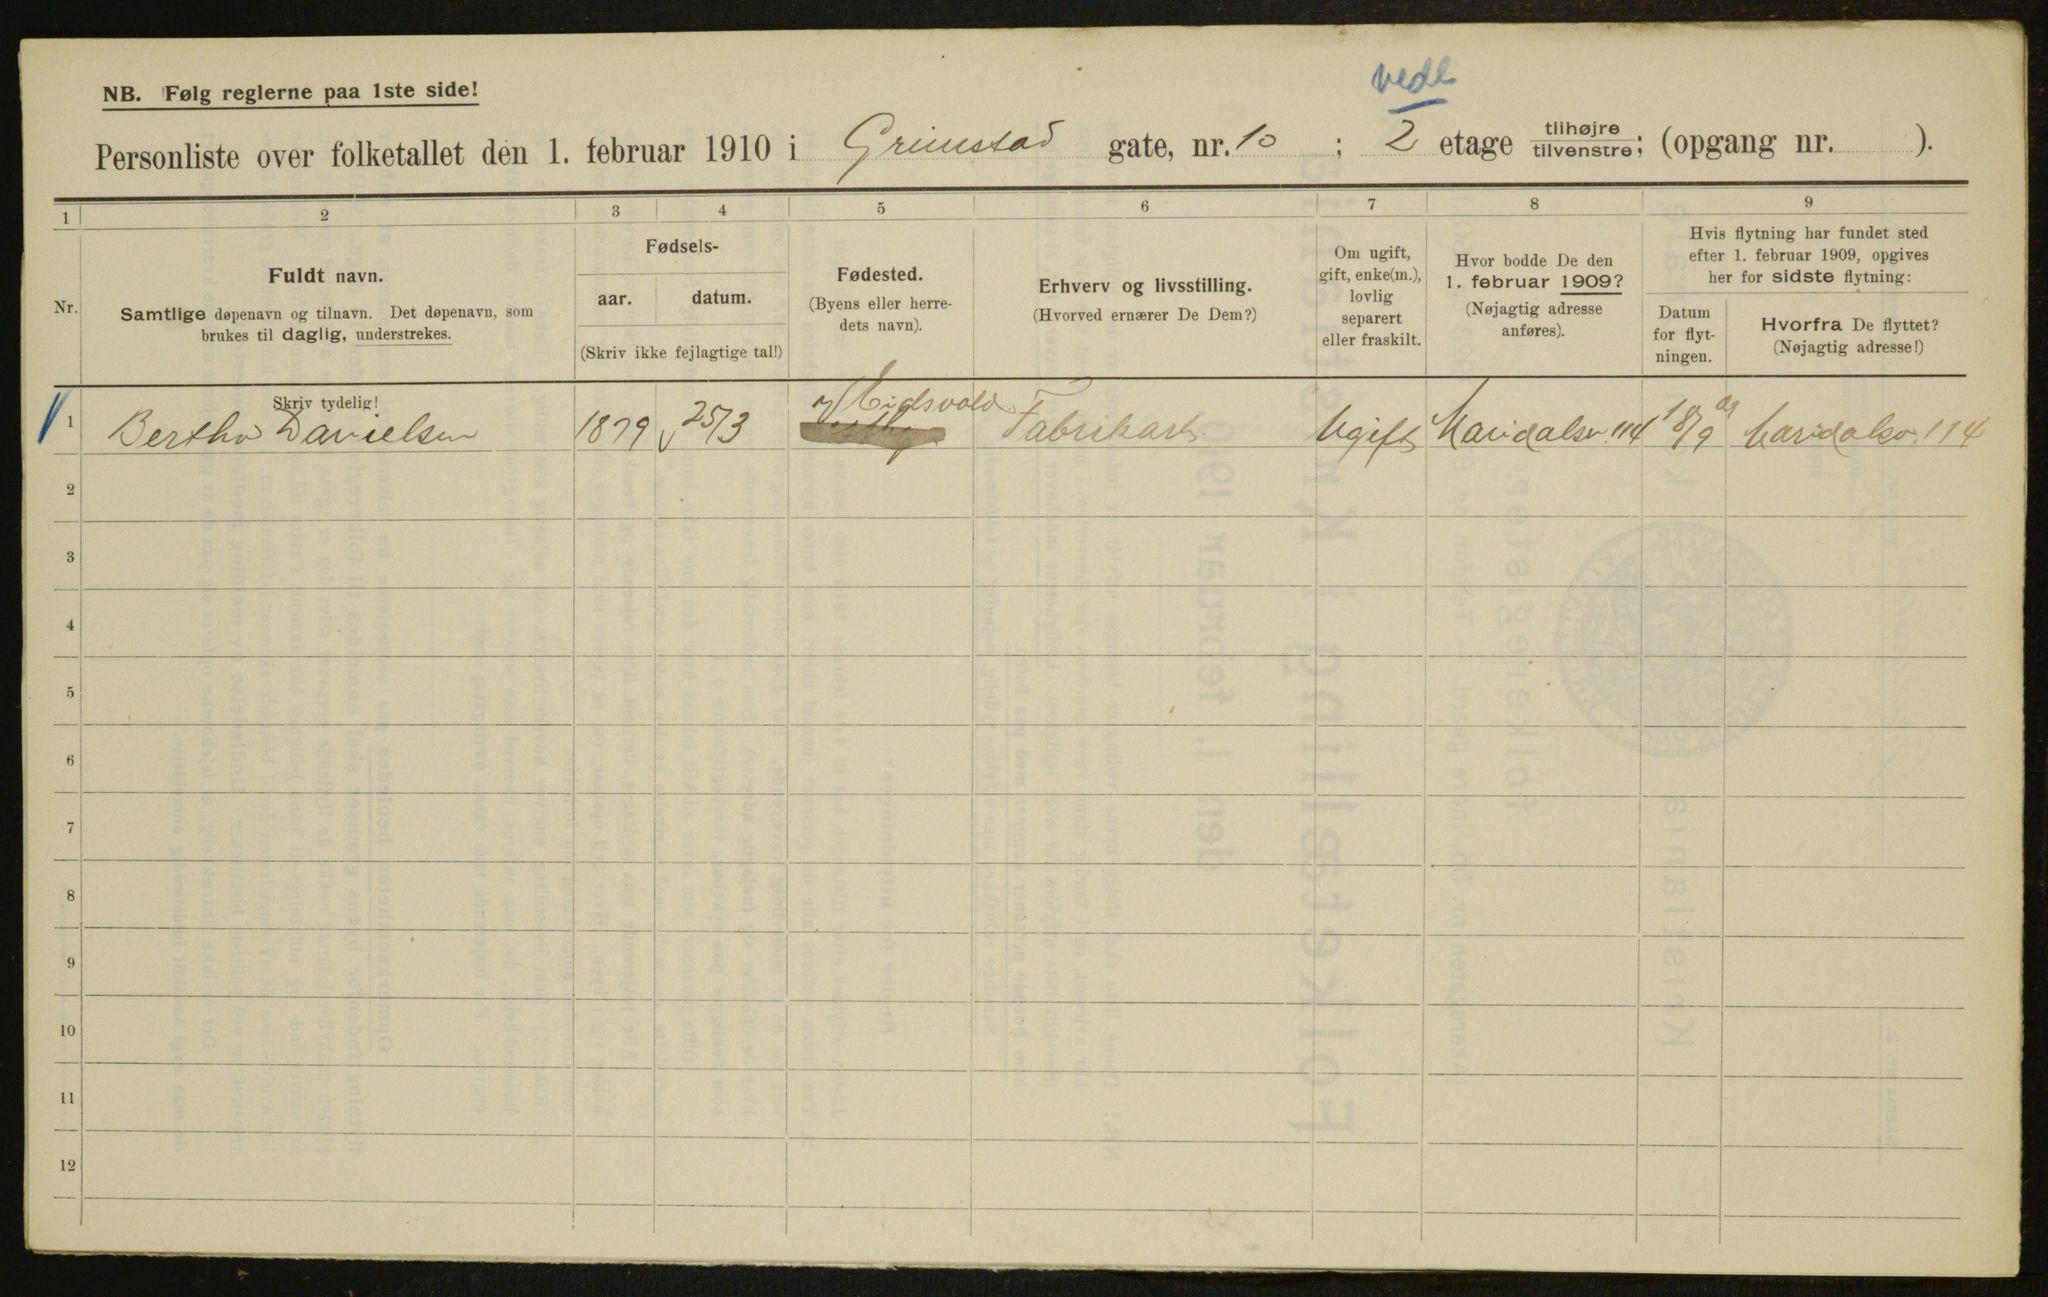 vedl
NB. Følg reglerne paa 1ste side!
Personliste over folketallet den 1. februar 1910 i Grimstad gate, nr. 10 ; 2 etage tilhøjre tilvenstre; (opgang nr. ).
1 2 3 4 5 6 7 8 9
Nr.
Fuldt navn.
Samtlige døpenavn og tilnavn. Det døpenavn, som
brukes til daglig, understrekes.
Fødsels-
aar. datum.
(Skriv ikke fejlagtige tal!)
Fødested.
(Byens eller herre-
dets navn).
Erhverv og livsstilling.
(Hvorved ernærer De Dem?)
Om ugift,
gift, enke(m.),
lovlig
separert
eller fraskilt.
Hvor bodde De den
1. februar 1909?
(Nøjagtig adresse
anføres).
Hvis flytning har fundet sted
efter 1. februar 1909, opgives
her for sidste flytning:
Datum
for flyt-
ningen.
Hvorfra De flyttet?
(Nøjagtig adresse!)
Skriv tydelig!
1 Bertha Danielsen 1879 25/3 Eidsvold Fabrikarb. Ugift Maridalsv. 114 Maridalsv. 114
2
3
4
5
6
7
8
9
10
11
12